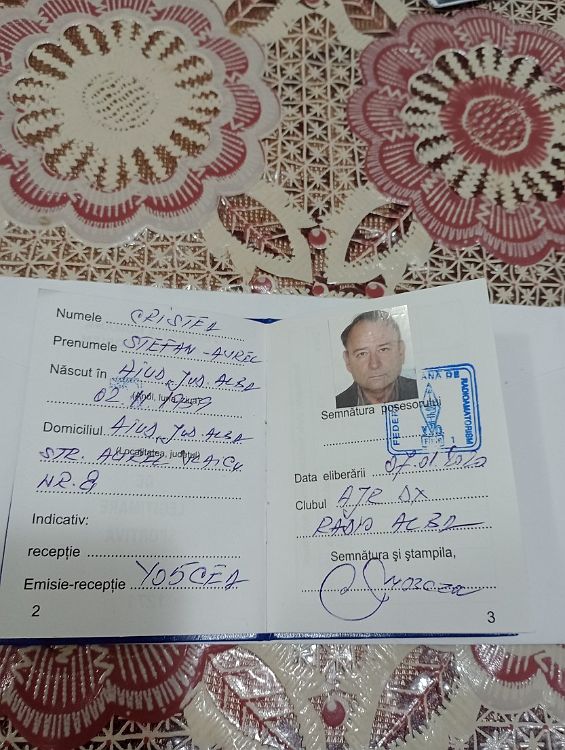 Numele CRISTEA
Prenumele STEFAN-AUREL
Născut în AIUD, JUD. ALBA
02 1939
Domiciliul AIUD, JUD ALBA
(Localitatea, județul)
STR. AUREL VLAICU
NR. 8
Indicativ:
recepție
Emisie-recepție YO5CEA
2
Semnătura posesorului
FEDERAȚIA ROMÂNĂ DE RADIOAMATORISM
Data eliberării 07.01.2012
Clubul AJR DX
RADIO ALBA
Semnătura şi ştampila,
3